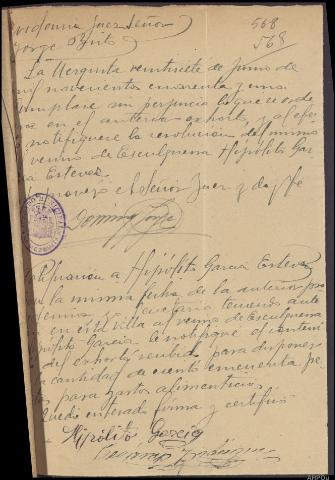 Providencia Juez Señor
Jorge Brito
568
568
La Mezquita veintisiete de Junio de
mil novecientos cuarenta y uno
Cumplase sin perjuicio lo que se orde
na en el anterior exhorto, y al efecto
notifiquese la resolucion del mismo
vecino de Esculqueira Hipólito Gar
cia Estevez.
Lo proveyó el Señor Juez y doy fe
Domingo Jorge
Notificación a Hipólito García Estevez
En la misma fecha de la anterior pro
videncia yo Secretario teniendo ante
mi en esta villa al vecino de Esculqueira
Hipólito García le notifiqué el conteni
do del exhorto recibido para disponer
la cantidad de ciento cincuenta pe
setas para gastos alimenticios
Quedó enterado firma y certifico
Hipólito Garcia
AHPOU